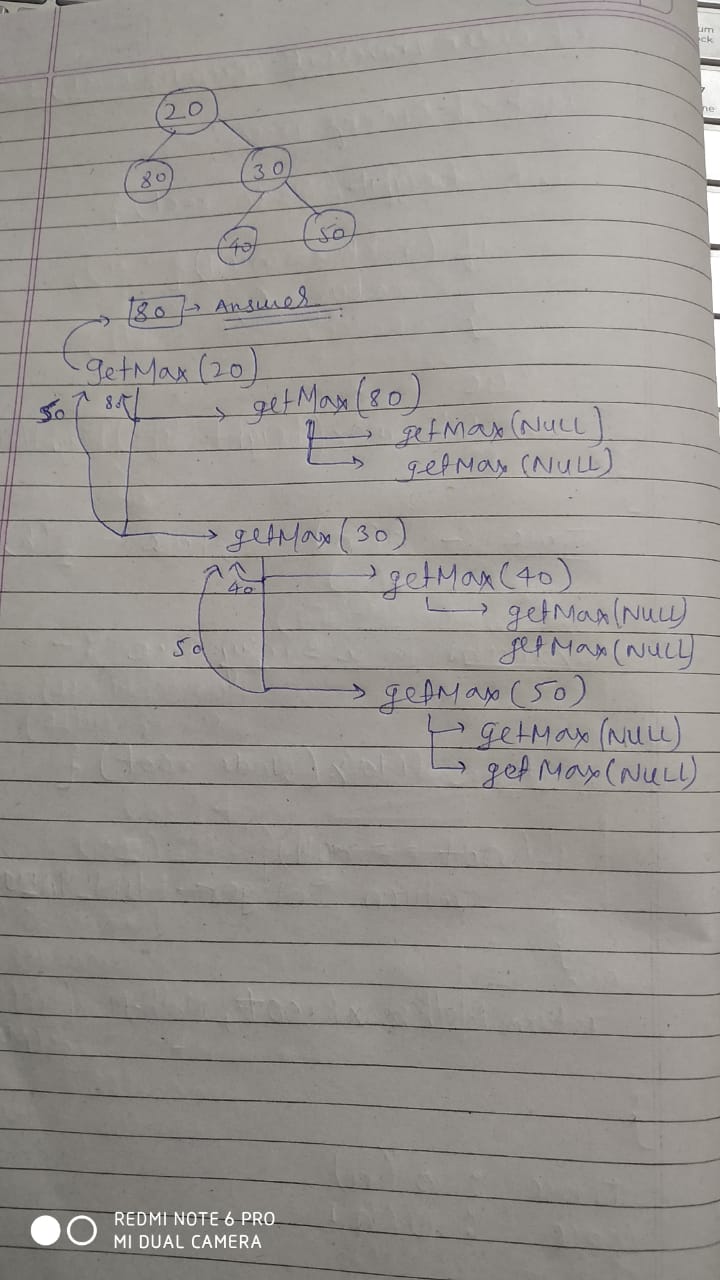 20
80 30
40 50
80 → Answer
getMax(20)
50 80 → getMax(80)
→ getMax(NULL)
→ getMax(NULL)
→ getMax(30)
40 → getMax(40)
→ getMax(NULL)
getMax(NULL)
50
→ getMax(50)
→ getMax(NULL)
→ getMax(NULL)
REDMI NOTE 6 PRO
MI DUAL CAMERA